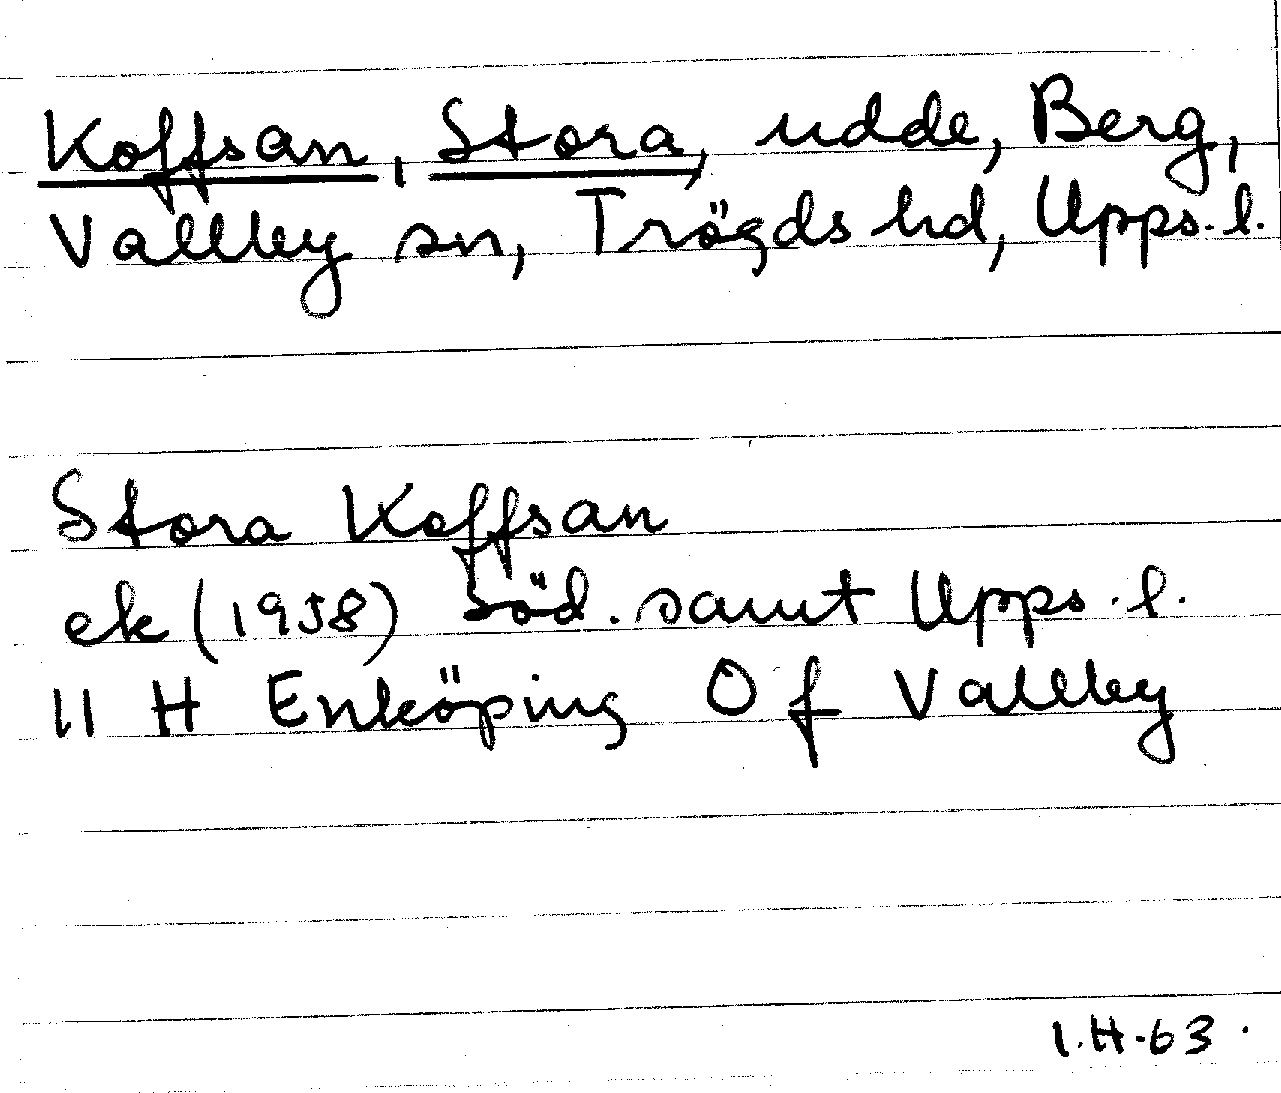 Koffsan, Stora, udde, Berg,
Vallby sn, Trögds hd, Upps. l.
Stora Koffsan
ek (1958) Söd. samt Upps. l.
11 H Enköping 0 f Vallby
I.H-63.